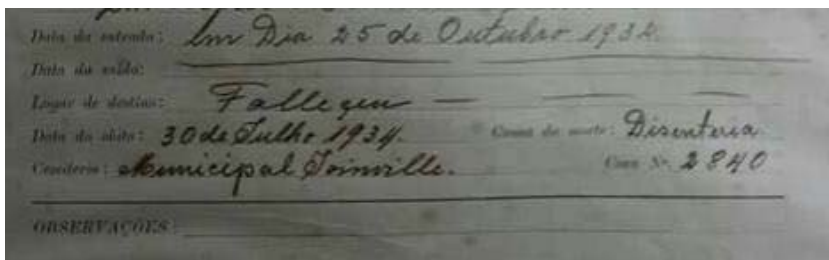 Data da entrada: Em Dia 25 de Outubro 1932
Data da saída:
Logar de destino: Falleçeu
Data do obito: 30 de Julho 1934. Causa da morte: Disenteria
Cemiterio: Municipal Joinville. Cova Nº 2840
OBSERVAÇÕES: